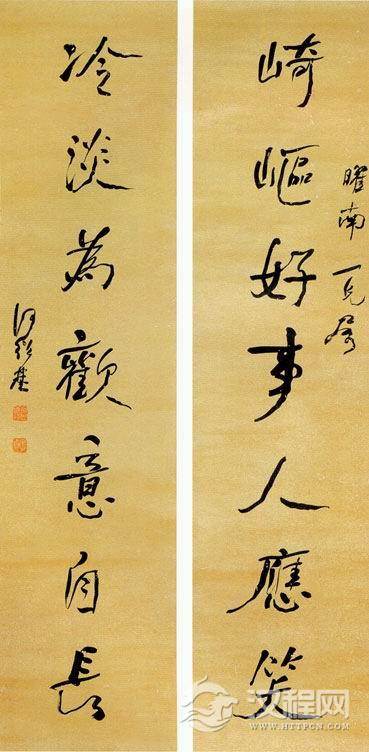 崎嶇好事人應笑
曜南一兄屬
冷淡為歡意自長
何紹基
汉程网
WWW.HTTPCN.COM